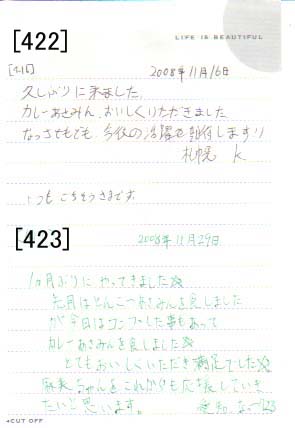 [422]
LIFE IS BEAUTIFUL
2008年11月16日
久しぶりに来ました。
カレーあさみん、おいしくいただきました
なっさせもでも、今後の活躍を期待します!!
札幌 K
いつも ごちそうさまです。
[423]
2008年11月29日
1ヵ月ぶりに やってきました☆
先月はとんこつあさみんを食しました
が今日はコンプした事もあって
カレーあさみんを食しました☆
とてもおいしくいただき満足でした☆
麻美ちゃんをこれからも応援していき
たいと思います。
CUT OFF